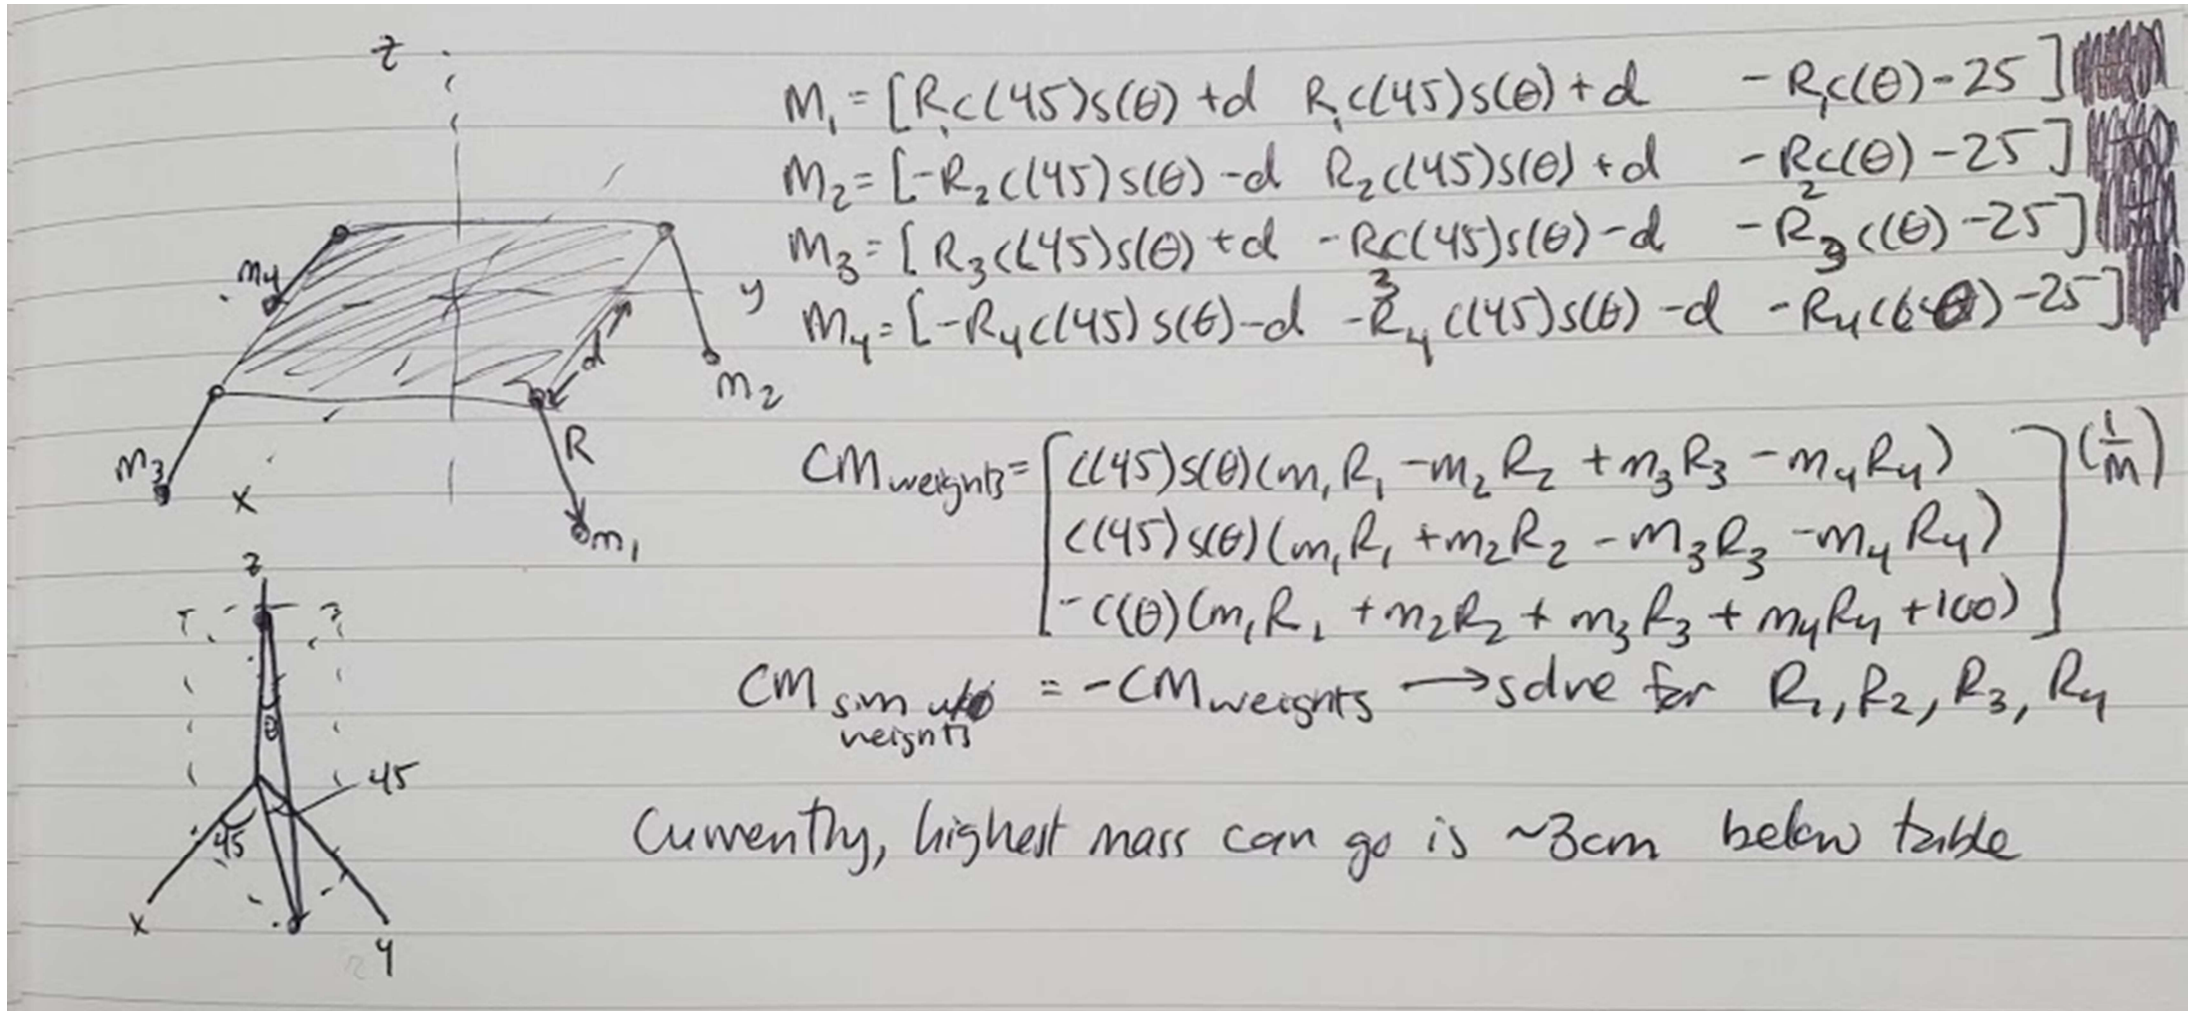 z
M₁ = [R₁c(45)s(θ) + d R₁c(45)s(θ) + d - R₁c(θ) - 25]
M₂ = [-R₂c(45)s(θ) - d R₂c(45)s(θ) + d - R₂c(θ) - 25]
M₃ = [R₃c(45)s(θ) + d - R₃c(45)s(θ) - d - R₃c(θ) - 25]
M₄ = [-R₄c(45)s(θ) - d - R₄c(45)s(θ) - d - R₄c(θ) - 25]
m₄
y
d
m₂
R
m₃
x
m₁
CM weights = [c(45)s(θ)(m₁R₁ - m₂R₂ + m₃R₃ - m₄R₄)
c(45)s(θ)(m₁R₁ + m₂R₂ - m₃R₃ - m₄R₄)
-c(θ)(m₁R₁ + m₂R₂ + m₃R₃ + m₄R₄ + 100)] (1/m)
CM sim w/o weights = -CM weights → solve for R₁, R₂, R₃, R₄
z
θ
45
45
x
y
Currently, highest mass can go is ~3cm below table